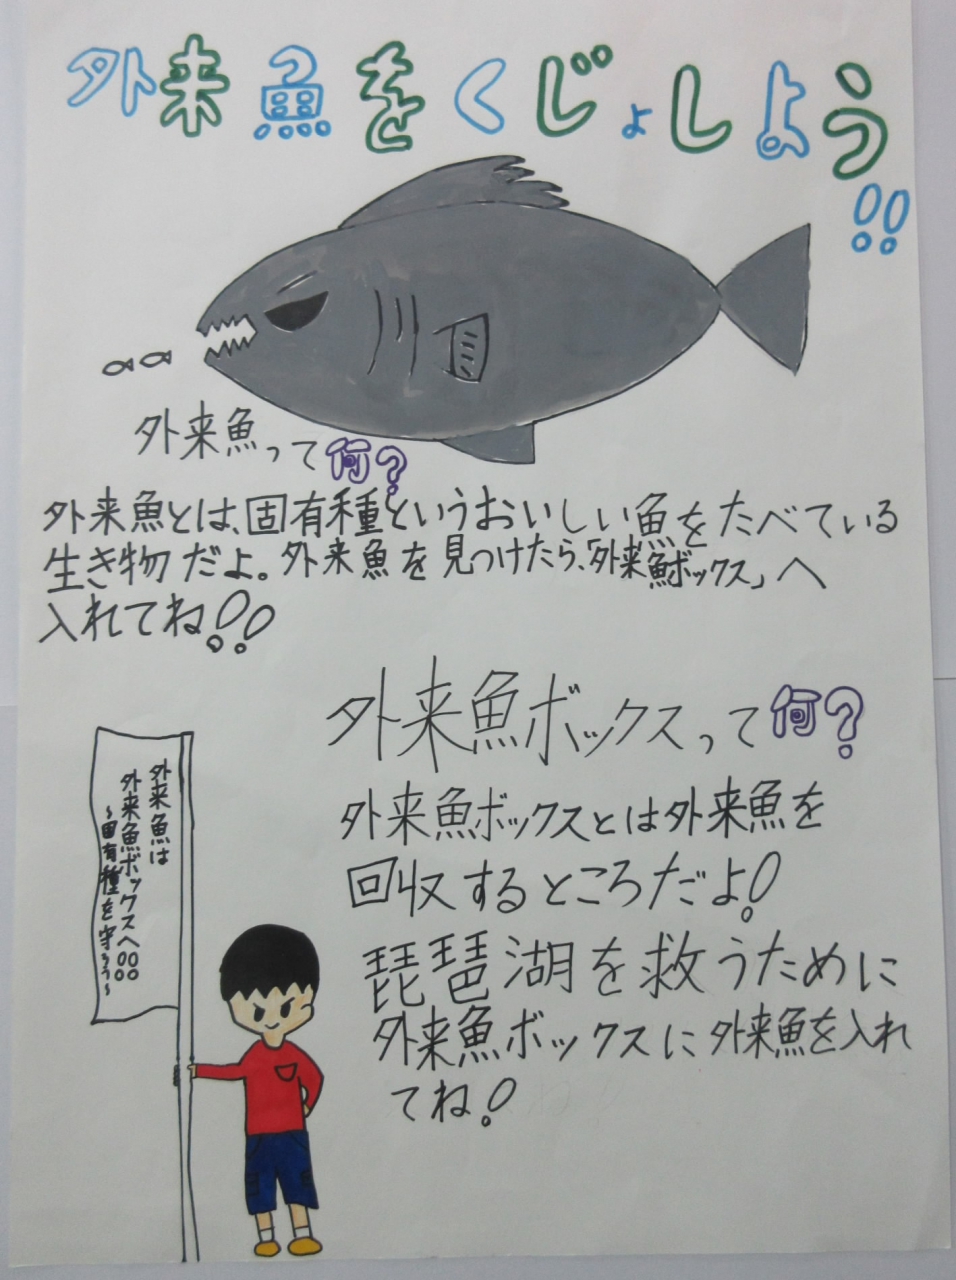 外来魚をくじょしよう!!
外来魚って何?
外来魚とは、固有種というおいしい魚をたべている
生き物だよ。外来魚を見つけたら、「外来魚ボックス」へ
入れてね!!
外来魚ボックスって何?
外来魚ボックスとは外来魚を
回収するところだよ!
琵琶湖を救うために
外来魚ボックスに外来魚を入れ
てね!
外来魚は
外来魚ボックスへ!!
~固有種を守ろう~